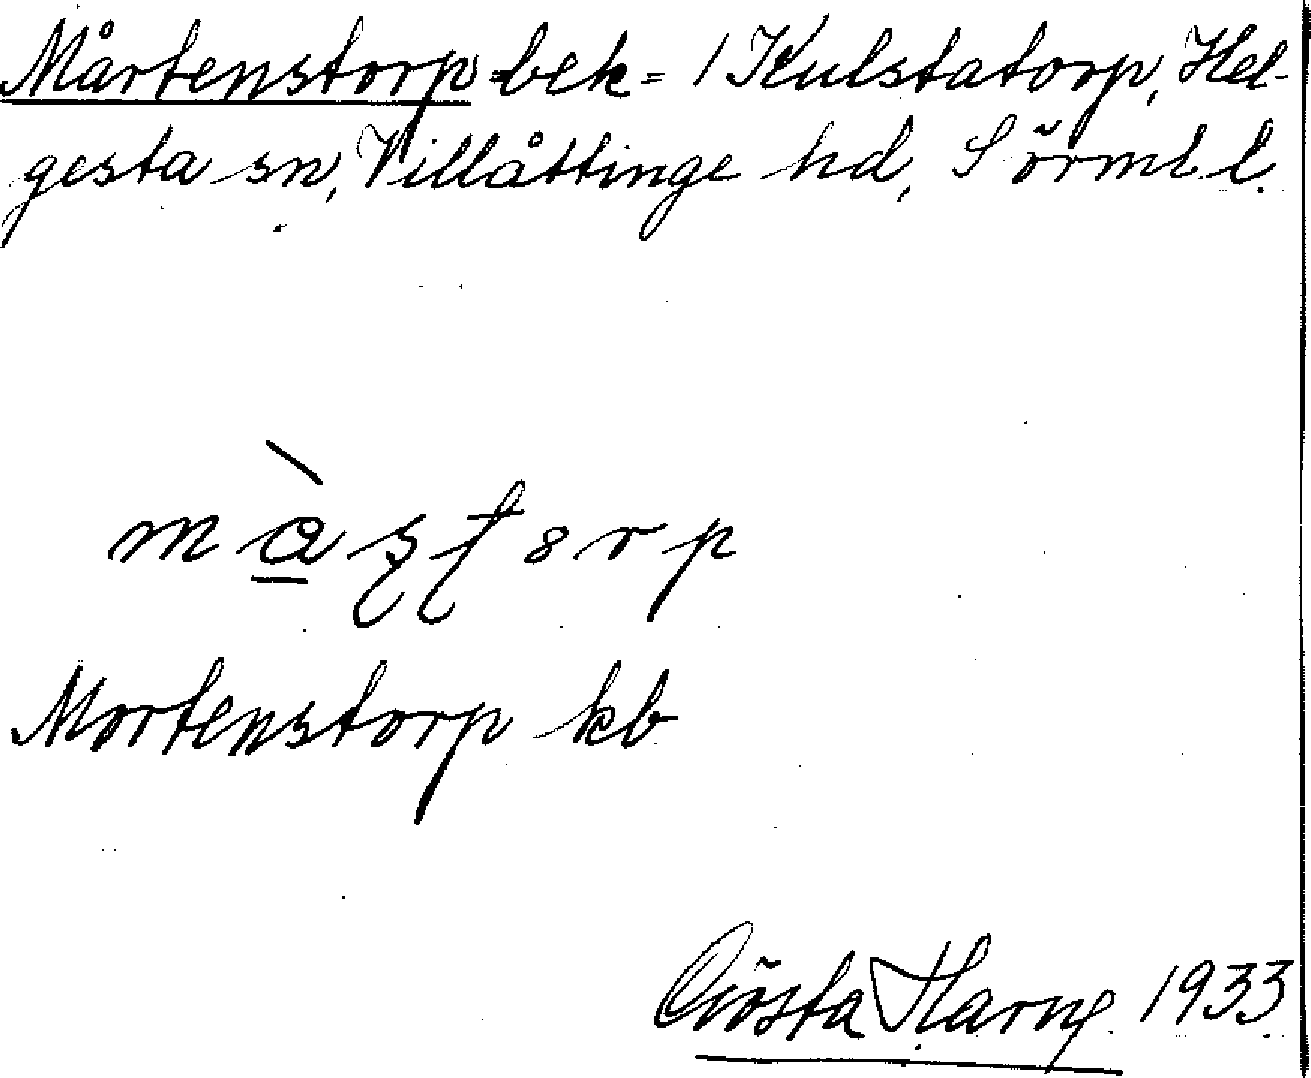 Mårtenstorp =bek= / Kulstatorp, Hel-
gesta sn, Villåttinge hd, Sörml. l.
Mortenstorp kb
Gösta Harng 1933